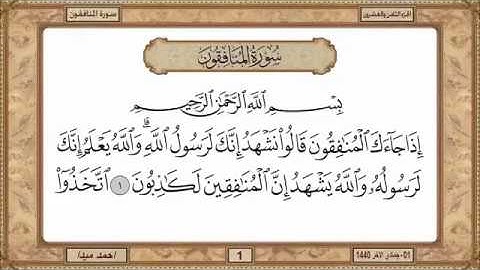 سورة المنافقون
الجزء الثامن والعشرون
سُورَةُ المُنَافِقُونَ
بِسْمِ اللَّهِ الرَّحْمَٰنِ الرَّحِيمِ
إِذَا جَاءَكَ الْمُنَافِقُونَ قَالُوا نَشْهَدُ إِنَّكَ لَرَسُولُ اللَّهِ ۗ وَاللَّهُ يَعْلَمُ إِنَّكَ
لَرَسُولُهُ وَاللَّهُ يَشْهَدُ إِنَّ الْمُنَافِقِينَ لَكَاذِبُونَ ١ اتَّخَذُوا
01- جمادى الآخر 1440
1